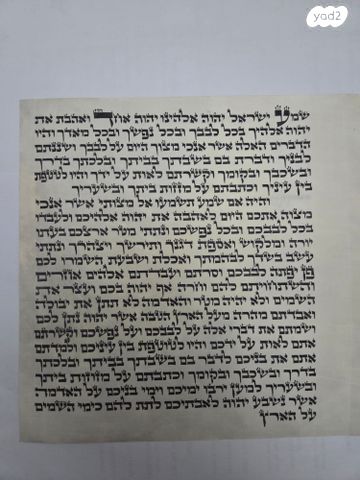 yad2
שמע ישראל יהוה אלהינו יהוה אחד ואהבת את
יהוה אלהיך בכל לבבך ובכל נפשך ובכל מאדך והיו
הדברים האלה אשר אנכי מצוך היום על לבבך ושננתם
לבניך ודברת בם בשבתך בביתך ובלכתך בדרך
ובשכבך ובקומך וקשרתם לאות על ידך והיו לטטפת
בין עיניך וכתבתם על מזזות ביתך ובשעריך
והיה אם שמע תשמעו אל מצותי אשר אנכי
מצוה אתכם היום לאהבה את יהוה אלהיכם ולעבדו
בכל לבבכם ובכל נפשכם ונתתי מטר ארצכם בעתו
יורה ומלקוש ואספת דגנך ותירשך ויצהרך ונתתי
עשב בשדך לבהמתך ואכלת ושבעת השמרו לכם
פן יפתה לבבכם וסרתם ועבדתם אלהים אחרים
והשתחויתם להם וחרה אף יהוה בכם ועצר את
השמים ולא יהיה מטר והאדמה לא תתן את יבולה
ואבדתם מהרה מעל הארץ הטבה אשר יהוה נתן לכם
ושמתם את דברי אלה על לבבכם ועל נפשכם וקשרתם
אתם לאות על ידכם והיו לטוטפת בין עיניכם ולמדתם
אתם את בניכם לדבר בם בשבתך בביתך ובלכתך
בדרך ובשכבך ובקומך וכתבתם על מזוזות ביתך
ובשעריך למען ירבו ימיכם וימי בניכם על האדמה
אשר נשבע יהוה לאבתיכם לתת להם כימי השמים
על הארץ